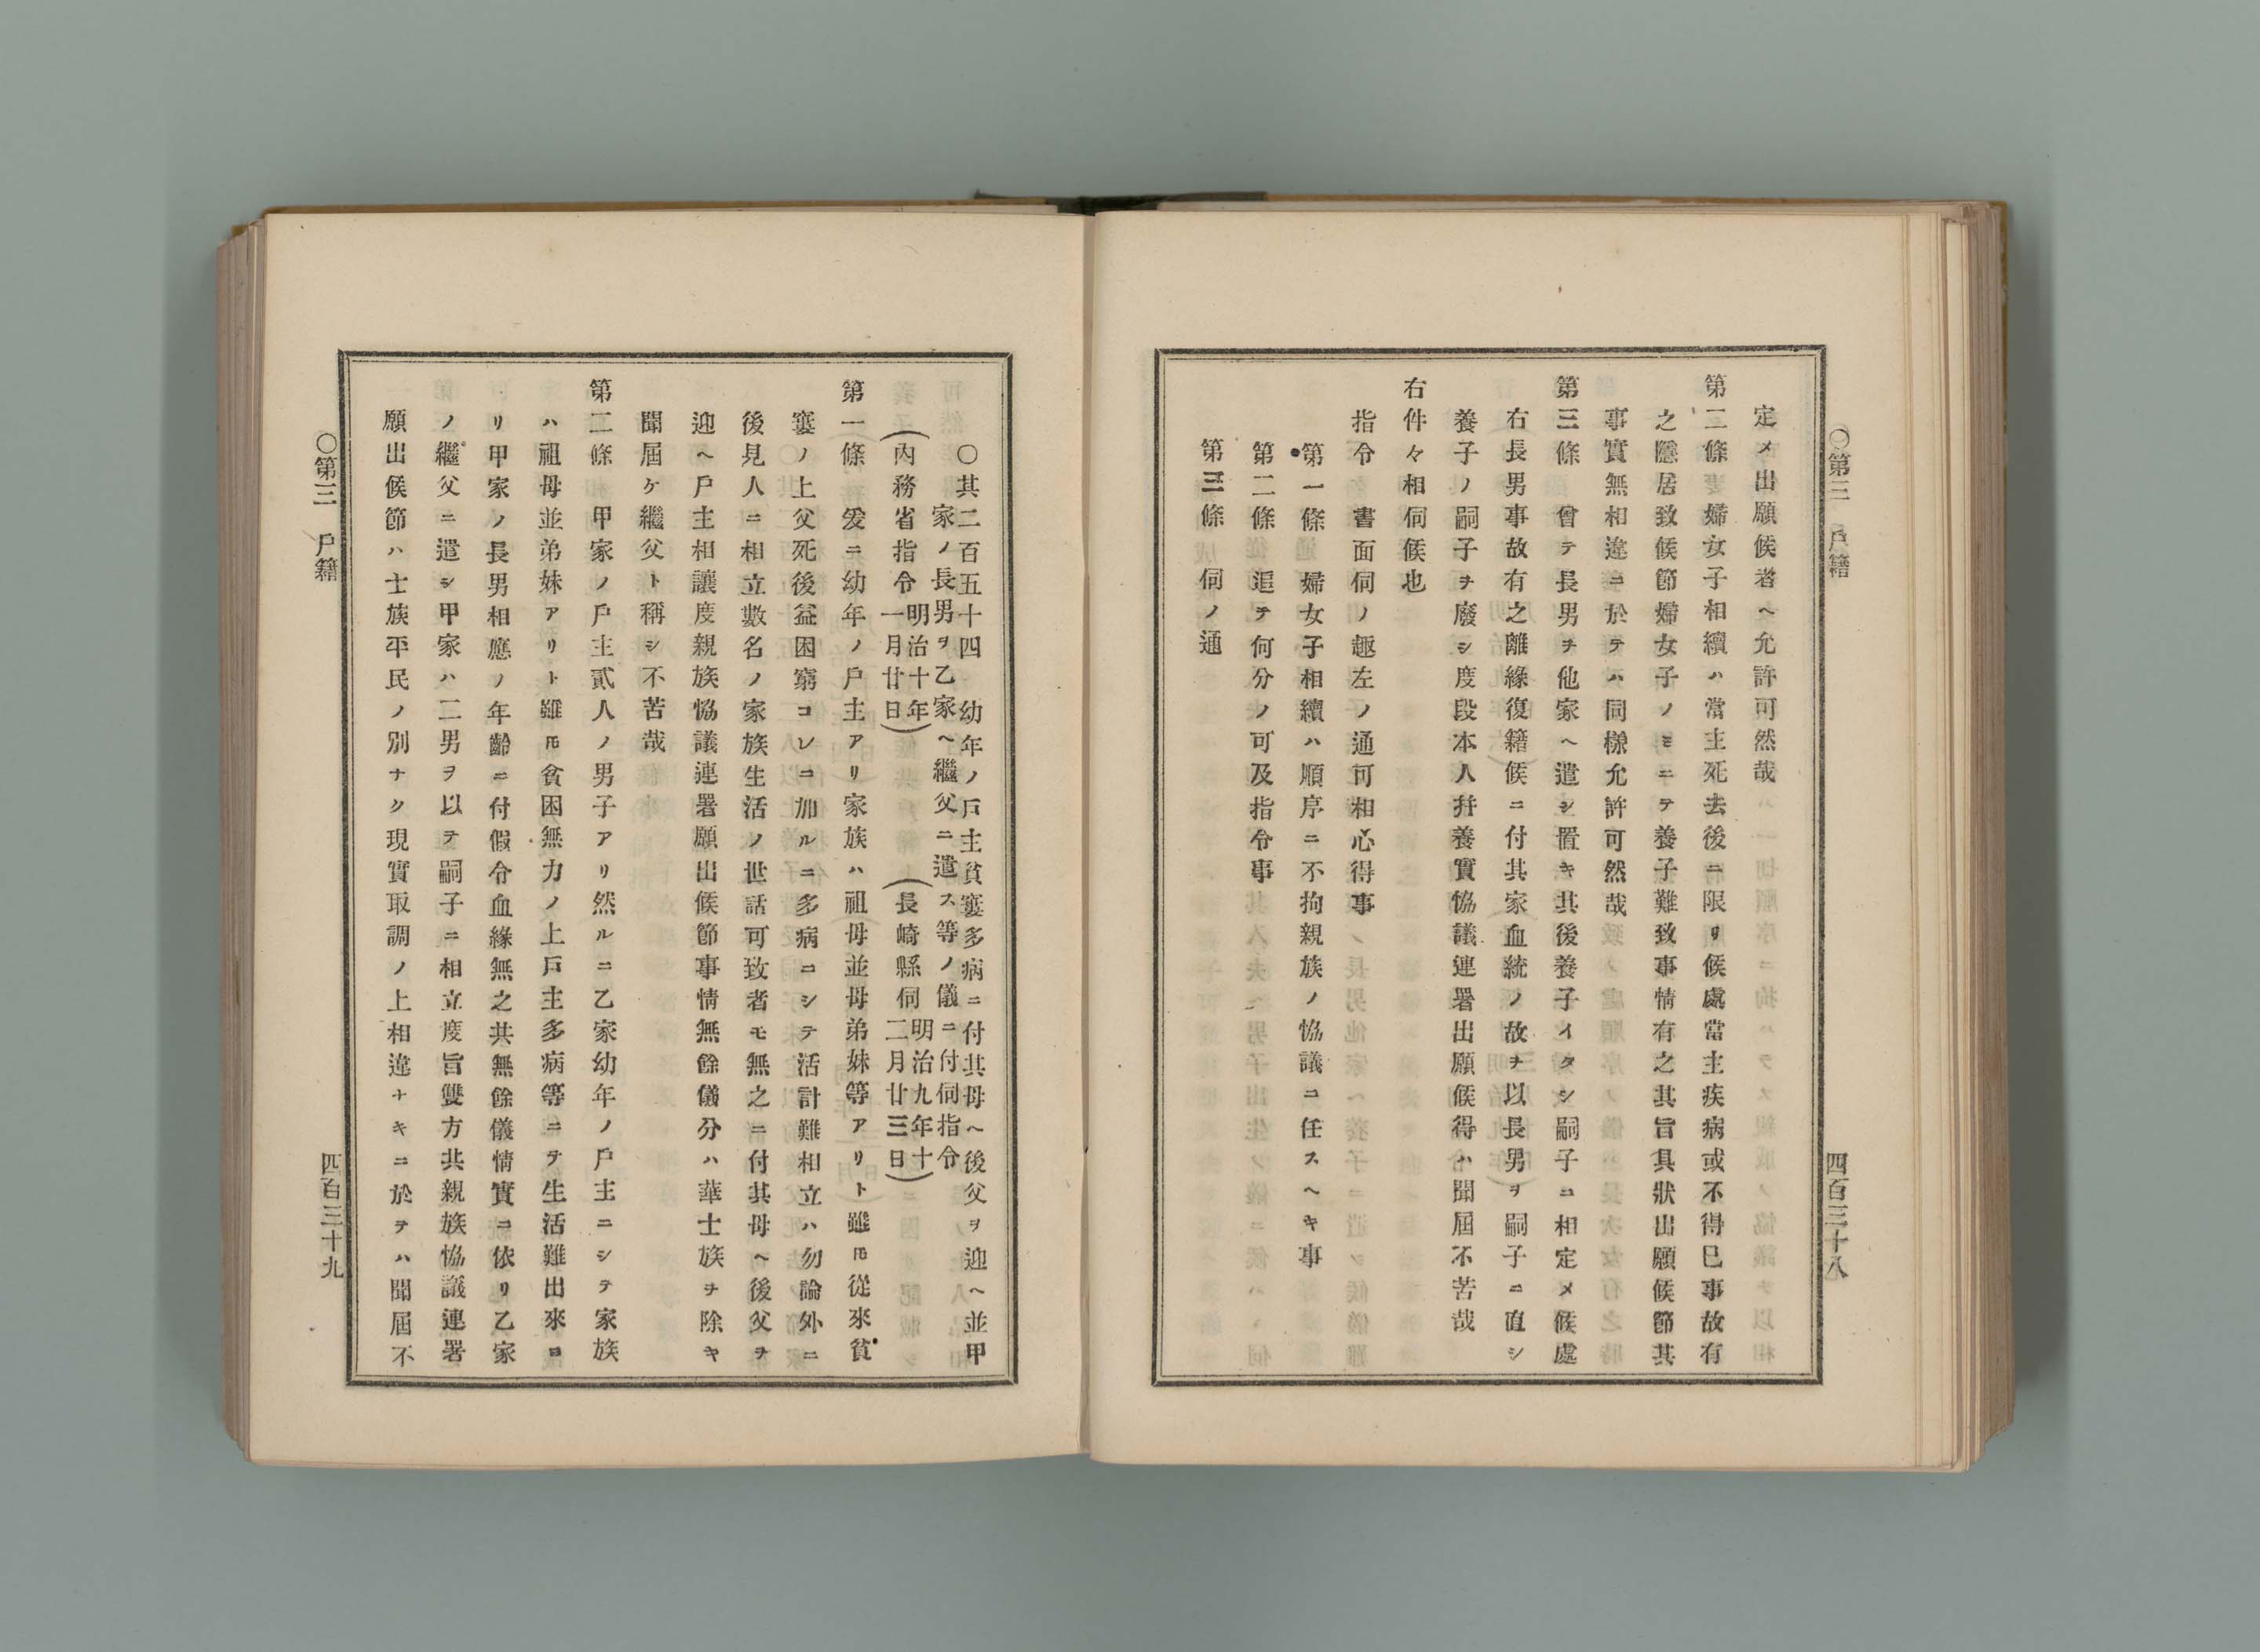 ○第三 戶籍
四百三十八
定メ出願候者ヘ允許可然哉
第二條 婦女子相續ハ當主死去後ニ限リ候處當主疾病或不得已事故有
之隱居致候節婦女子ノミニテ養子難致事情有之其旨具狀出願候節其
事實無相違ニ於テハ同樣允許可然哉
第三條 曾テ長男ヲ他家ヘ遣シ置キ其後養子イタシ嗣子ニ相定メ候處
右長男事故有之離緣復籍候ニ付其家血統ノ故ヲ以長男ヲ嗣子ニ直シ
養子ノ嗣子ヲ廢シ度段本人幷養實恊議連署出願候得ハ聞屆不苦哉
右件々相伺候也
指令 書面伺ノ趣左ノ通可相心得事
第一條 婦女子相續ハ順序ニ不拘親族ノ恊議ニ任スヘキ事
第二條 追テ何分ノ可及指令事
第三條 伺ノ通
○其二百五十四 幼年ノ戶主貧窶多病ニ付其母ヘ後父ヲ迎ヘ並甲
家ノ長男ヲ乙家ヘ繼父ニ遣ス等ノ儀ニ付伺指令
(內務省指令明治十年一月廿日) (長崎縣伺明治九年十二月廿三日)
第一條 爰ニ幼年ノ戶主アリ家族ハ祖母並母弟妹等アリト雖𪜈從來貧
窶ノ上父死後益困窮コレニ加ルニ多病ニシテ活計難相立ハ勿論外ニ
後見人ニ相立數名ノ家族生活ノ世話可致者モ無之ニ付其母ヘ後父ヲ
迎ヘ戶主相讓度親族恊議連署願出候節事情無餘儀分ハ華士族ヲ除キ
聞屆ケ繼父ト稱シ不苦哉
第二條 甲家ノ戶主貳人ノ男子アリ然ルニ乙家幼年ノ戶主ニシテ家族
ハ祖母並弟妹アリト雖𪜈貧困無力ノ上戶主多病等ニテ生活難出來ヨ
リ甲家ノ長男相應ノ年齡ニ付假令血緣無之共無餘儀情實ニ依リ乙家
ノ繼父ニ遣シ甲家ハ二男ヲ以テ嗣子ニ相立度旨雙方共親族恊議連署
願出候節ハ士族平民ノ別ナク現實取調ノ上相違ナキニ於テハ聞屆不
○第三 戶籍
四百三十九